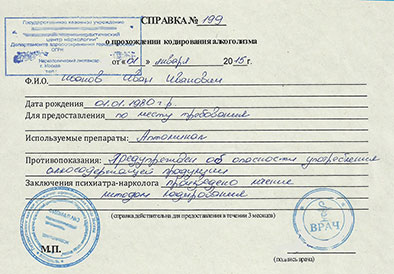 Государственное казенное учреждение
центр наркологии"
Департамента здравоохранения
ОГРН
г. Москва
СПРАВКА № 199
о прохождении кодирования алкоголизма
от « 01 » января 2015 г.
Ф.И.О. Иванов Иван Иванович
Дата рождения 01.01.1980 г.р.
Для предоставления по месту требования
Используемые препараты: Аптоминал
Противопоказания: Предупрежден об опасности употребления
алкосодержащей продукции
Заключения психиатра-нарколога произведено лечение
методом кодирования
(справка действительна для предоставления в течении 3 месяцев)
М.П.
ВРАЧ
(подпись врача)